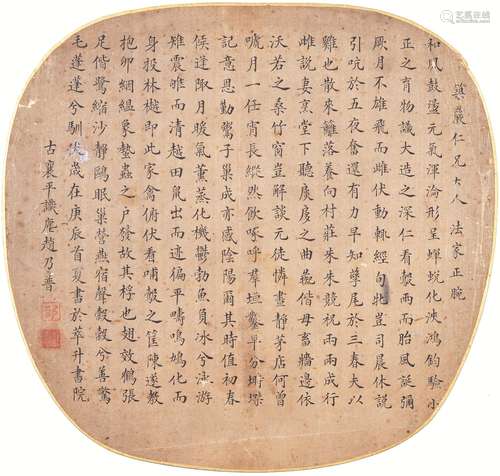 仁兄大人 法家正腕
和風鼓盪元氣渾淪形呈蟬蛻化泆鴻鈞驗小
正之育物識大造之深仁看鷇雨而胎風誕彌
厥月不雄飛而雌伏動輒經句牝豈司晨休説
引吭於五夜奮還有力早知孳尾於三春夫以
雞也散來籬落春向村莊朱朱競祝兩兩成行
雌説妻京堂下聽之曲偕母畜牆邊依
沃若之桑竹窗豈解談元徒憐晝靜茅店何曾
唬月一任宵長縱然飲啄呼羣垣鑿早分塒堞
記意思勤鬻子巢成亦感陰陽爾其時值初春
候逢陬月暖氣薰蒸化機鬱勃魚負冰兮游
雉震雊而清越田鼠出而迹偏平疇鳴鳩化而
身投林樾即此家禽俯伏看哺鷇之筐陳遂教
抱卵絪縕象蟄蟲之戶發故其桴也翅效鶴張
足偕鷺縮沙靜鷗眠巢營燕宿聲鷇鷇兮善驚
毛蓬蓬兮馴伏歲在庚辰首夏書於萃升書院
古襄平識塵趙乃普